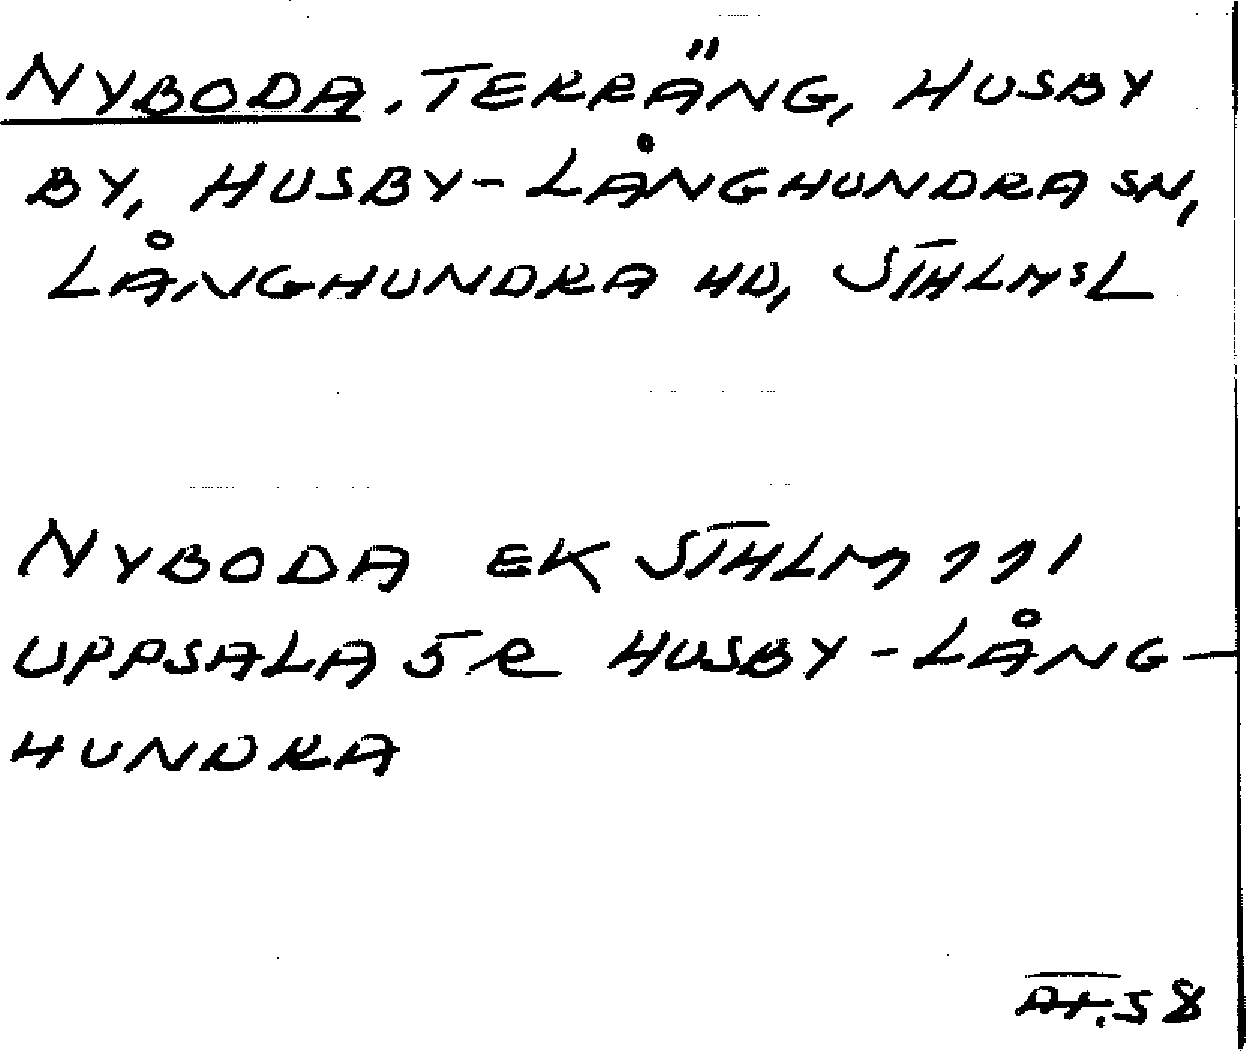 NYBODA. TERRÄNG, HUSBY
BY, HUSBY-LÅNGHUNDRA SN,
LÅNGHUNDRA HD, STHLMSL
NYBODA EK STHLM 111
UPPSALA 5 R HUSBY-LÅNG-
HUNDRA